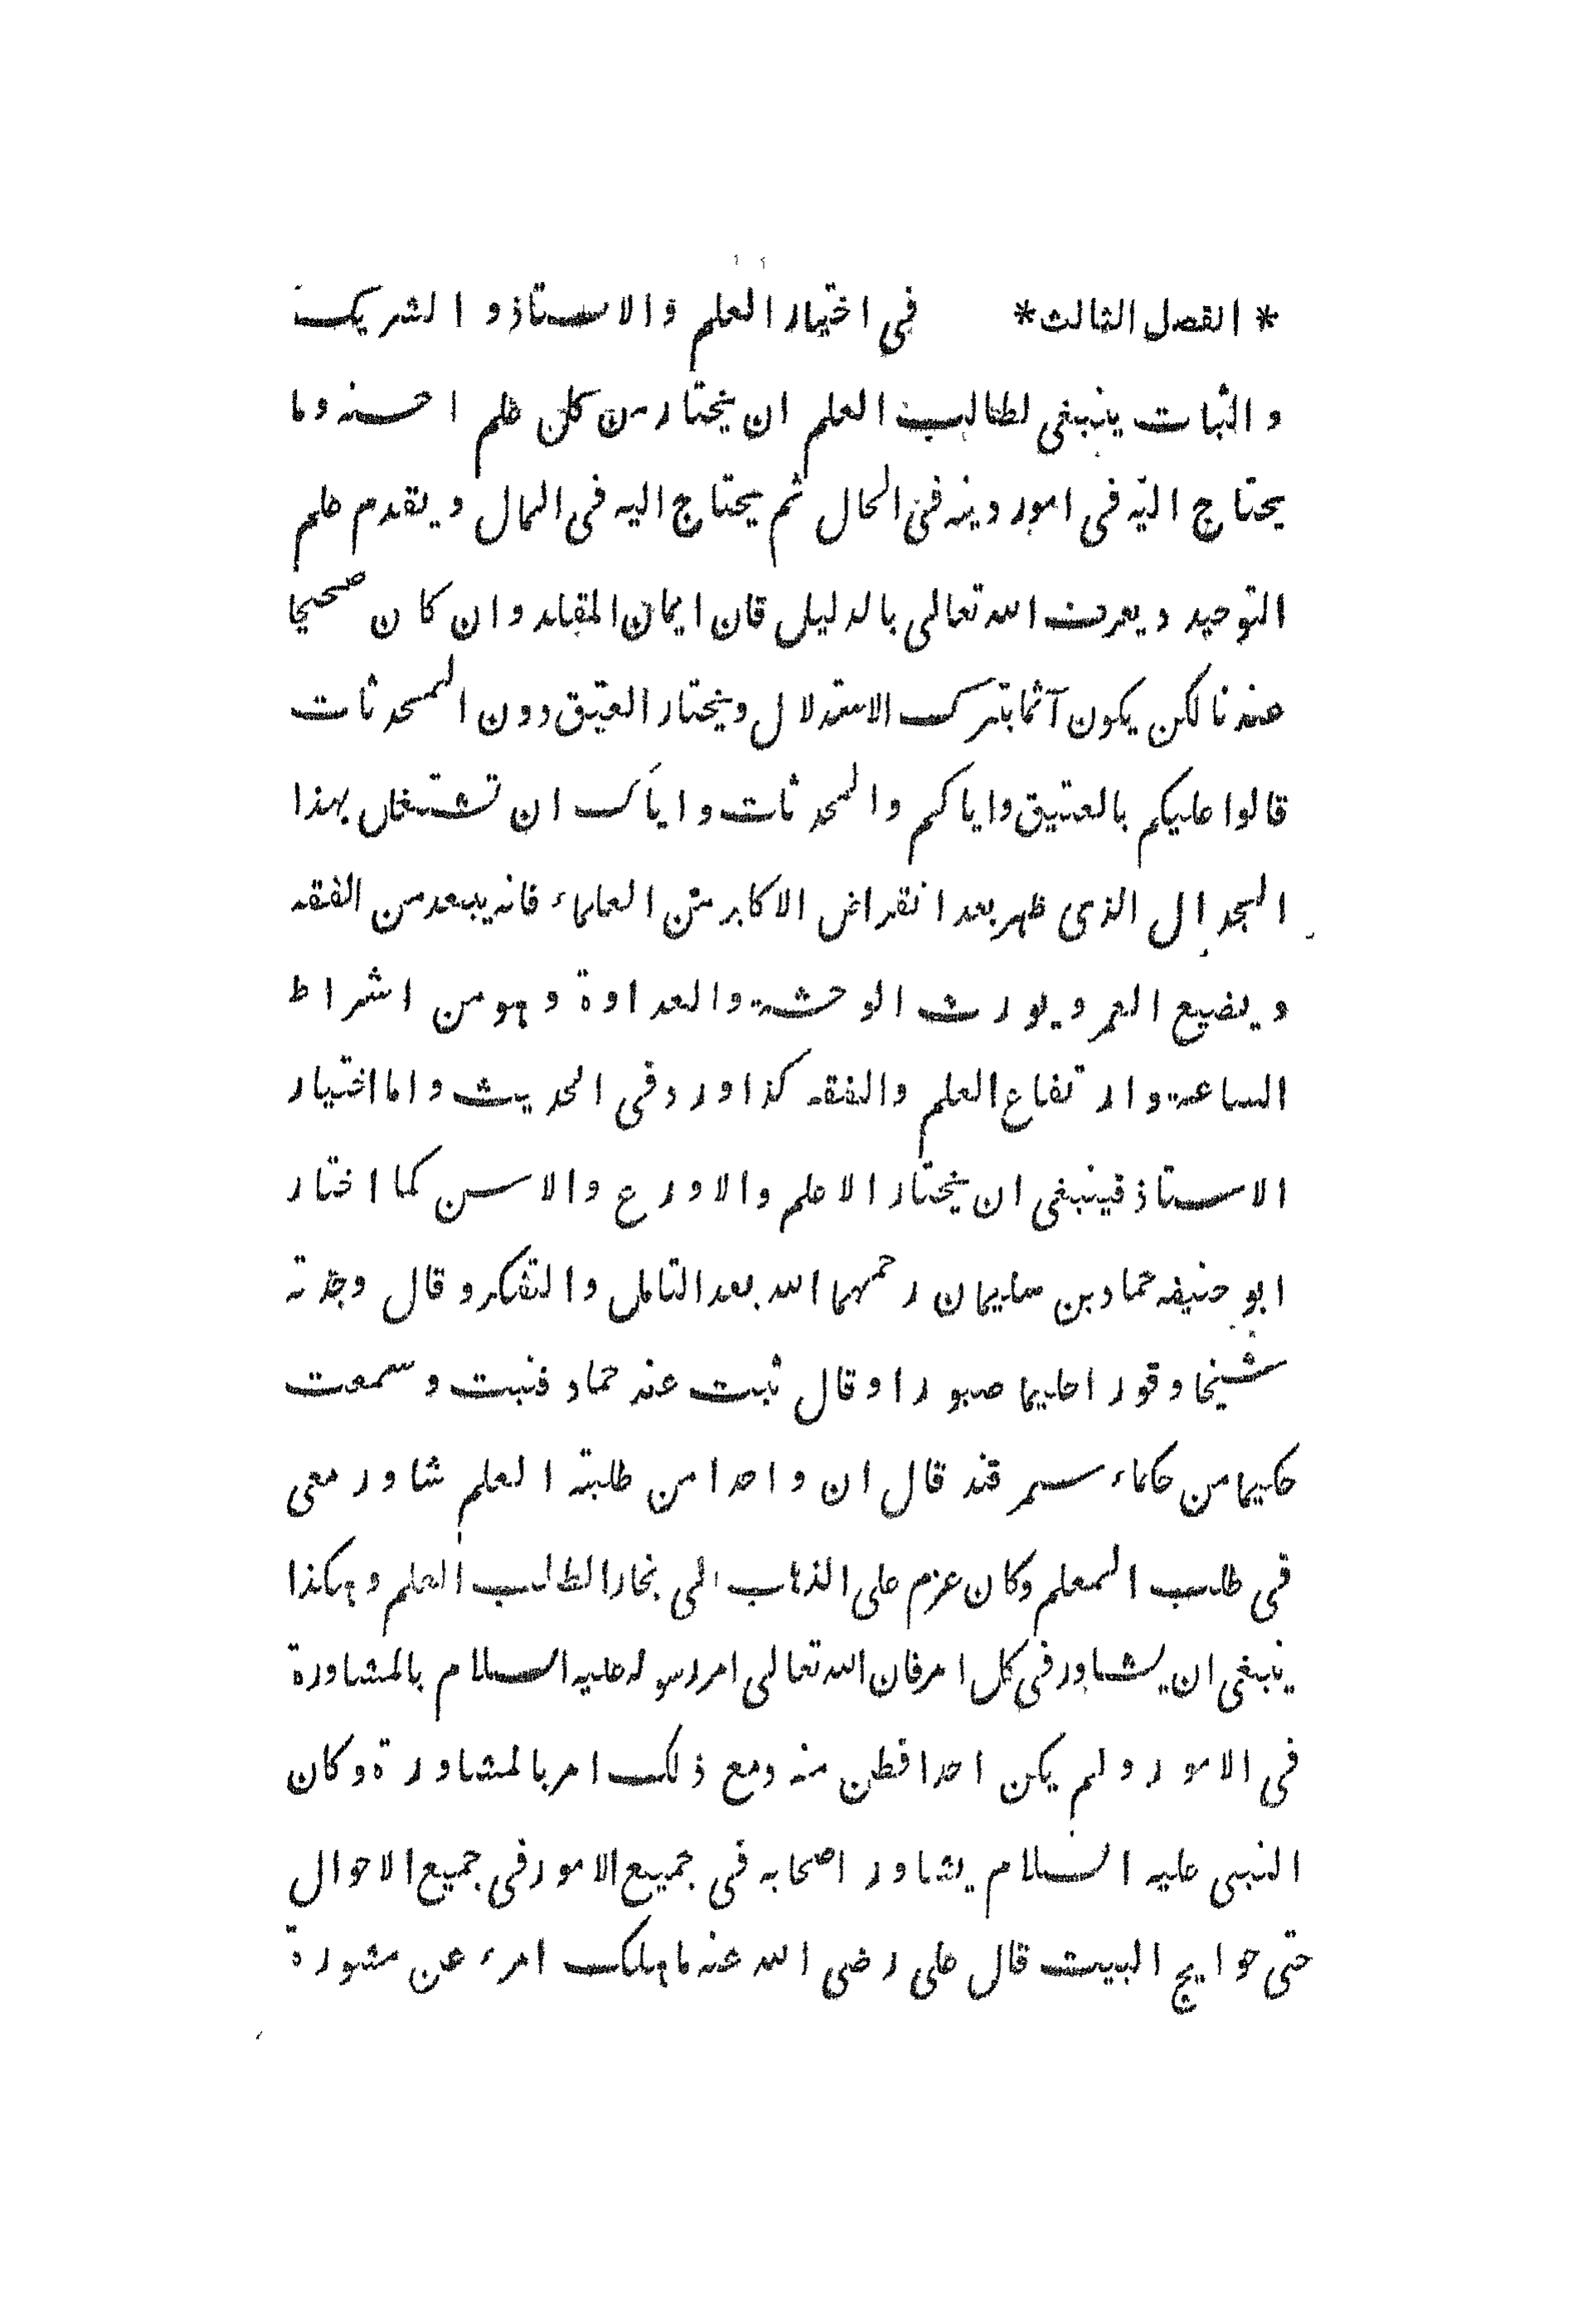 * الفصل الثالث * فى اختيار العلم والاستاذ و الشريك
و الثبات ينبغى لطالب العلم ان يختار من كل علم احسنه وما
يحتاج اليه فى امور دينه فى الحال ثم يحتاج اليه فى المال ويقدم علم
التوحيد ويعرف الله تعالى بالدليل فان ايمان المقلد وان كان صحيحا
عندنا لكن يكون آثما بترك الاستدلال ويختار العتيق دون المحدثات
قالوا عليكم بالعتيق واياكم والمحدثات واياك ان تشتغل بهذا
الجدال الذى ظهر بعد انقراض الاكابر من العلماء فانه يبعد من الفقه
ويضيع العمر ويورث الوحشة والعداوة وهو من اشراط
الساعة وارتفاع العلم والفقه كذا ورد فى الحديث واما اختيار
الاستاذ فينبغى ان يختار الاعلم والاورع والاسن كما اختار
ابو حنيفه حماد بن سليمان رحمهما الله بعد التامل والتفكر وقال وجدته
شيخا وقورا حليما صبورا وقال ثبت عند حماد فنبت وسمعت
حكيما من حكماء سمرقند قال ان واحدا من طلبة العلم شاور معى
فى طلب العلم وكان عزم على الذهاب الى بخارا لطلب العلم وهكذا
ينبغى ان يشاور فى كل امر فان الله تعالى امر رسوله عليه السلام بالمشاورة
فى الامور ولم يكن احدا فطن منه ومع ذلك امر بالمشاورة وكان
النبى عليه السلام يشاور اصحابه فى جميع الامور فى جميع الاحوال
حتى حوايج البيت قال على رضى الله عنه ماهلك امرء عن مشورة